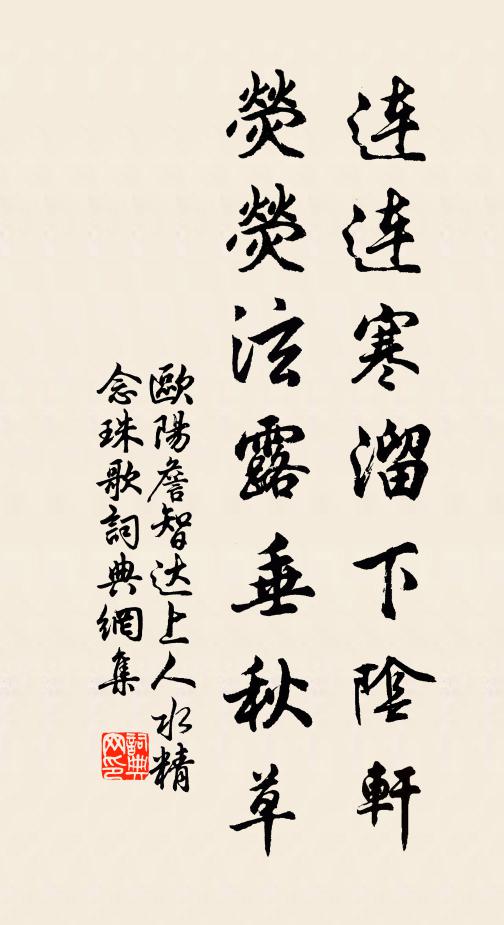 连连寒溜下陰軒
熒熒泫露垂秋草
歐陽詹智达上人水精
念珠歌詞典網集
詞典
网印